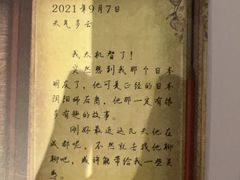 2021年9月7日
天气多云
我太机智了！
突然想到我那个日本
朋友了，他可是正经的日本
阴阳师后裔，他那一定有很
多有趣的故事。
刚好最近这几天他在
成都呢，不然就去找他聊
聊吧，或许能带给我一些灵
感。